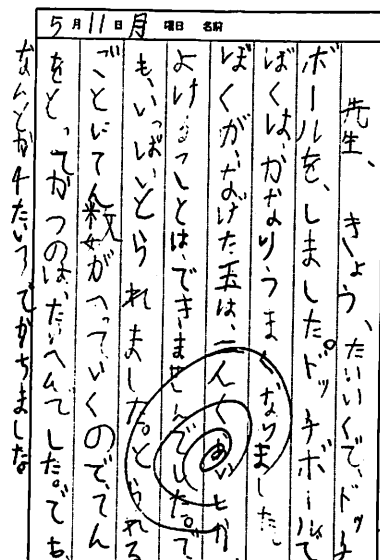 5月11日月曜日 名前
先生、きょう、たいいくで、ドッチ
ボールを、しました。ドッチボールで
ぼくは、かなりうまくなりました。
ぼくが、なげた玉は、二人くらいしか、
よけることは、できませんでした。で
も、いっぱいとられました。とられる
ごとにてん数がへっていくので、てん
をとってかつのは、たいへんでした。でも、
なんとか4たい1でかちました